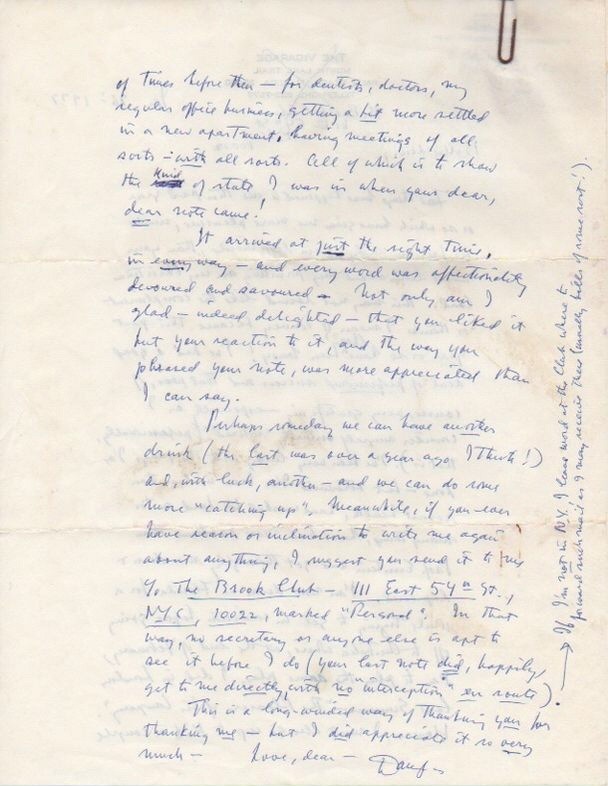 of times before then — for dentists, doctors, my
regular office business, getting a bit more settled
in a new apartment, having meetings of all
sorts — with all sorts. All of which is to show
the kind of state I was in when your dear,
dear note came!
It arrived at just the right time,
in every way — and every word was affectionately
devoured and savoured — Not only am I
glad — indeed delighted — that you liked it
but your reaction to it, and the way you
phrased your note, was more appreciated than
I can say.
Perhaps someday we can have another
drink (the last was over a year ago I think!)
and, with luck, another — and we can do some
more "catching up". Meanwhile, if you ever
have reason or inclination to write me again
about anything, I suggest you send it to me
c/o The Brook Club — 111 East 54th St.,
NYC, 10022, marked "Personal". In that
way, no secretary or anyone else is apt to
see it before I do (your last note did, happily,
get to me directly, with no "interception" en route).
This is a long-winded way of thanking you for
thanking me — but I did appreciate it so very
much — Love, dear —
→ If I'm not in N.Y. I leave word at the Club where to
forward such mail as I may receive there (usually bills of some sort!).
THE VICARAGE
1977